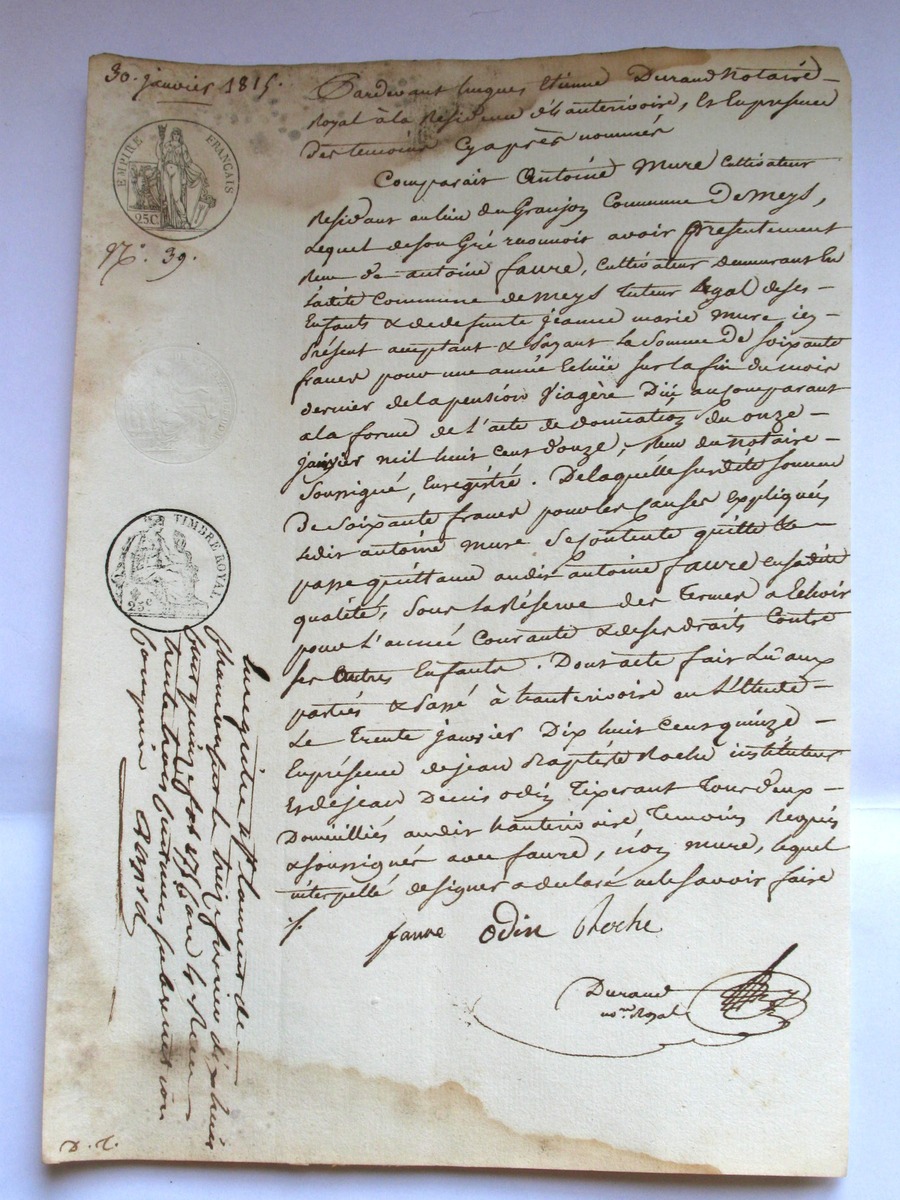 30. janvier 1815.
EMPIRE FRANÇAIS
25C
N.° 39.
TIMBRE ROYAL
25c
Pardevant Etienne Durand Notaire
Royal à la Residence d'hauterivoire, Et En presence
des temoins Cy après nommés
Comparait Antoine Mure Cultivateur
Residant au lieu du Granjon Commune De meys,
Lequel de son Gré reconnoit avoir presentement
Reçu de antoine faure, Cultivateur demeurant En
Ladite Commune de meys tuteur Légal de ses
Enfants & de defunte jeanne marie mure icy
présent acceptant & payant La Somme De Soixante
francs pour une année Echüe sur la fin du mois
dernier de la pension Viagère Düe au Comparant
a la forme de L'acte de donnation du onze
janvier mil huit Cent douze, Reçu du Notaire
Soussigné, Enregistré. De laquelle susdite somme
De Soixante francs pour les Causes Expliquées
Ledit antoine mure Se Contente quitte &
passe quittance audit antoine faure en sadite
qualité, Sous la Réserve des Termes a Echoir
pour L'année Courante & de ses droits Contre
ses Autres Enfants. Dont acte fait Lû aux
parties & Passé à hauterivoire en L'Etude
Le Trente janvier Dix huit Cent quinze
En présence de jean Baptiste Roche instituteur
Et de jean Denis odin Tixerant Tous deux
Domiciliés audit hauterivoire Temoins Requis
& soussignés avec faure, non mure, lequel
interpellé de signer a declaré ne le Savoir faire
faure Odin Roche
Durand
no.re Royal
Enregistré à St Laurent de
Chamousset le treize fevrier dix huit
cent quinze f.o Reçu
trente trois Centimes subvention
Comprise
D. R.